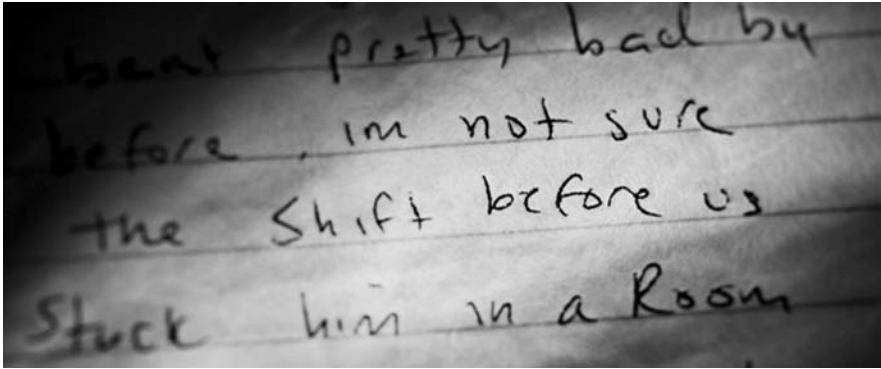 beat pretty bad by
before, im not sure
the Shift before us
Stuck him in a Room